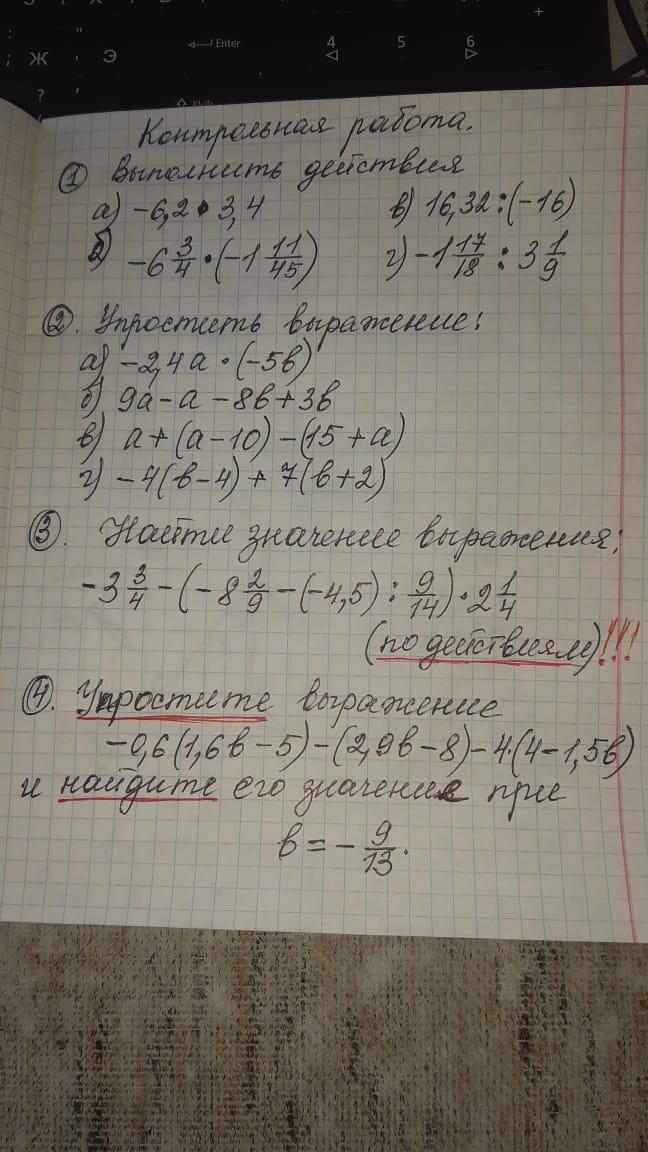 +
Ж Э Enter 4 5 6
?
Контрольная работа.
① Выполнить действия
а) -6,2 • 3,4 в) 16,32 : (-16)
б) -6 3/4 • (-1 11/45) г) -1 17/18 : 3 1/9
②. Упростить выражение:
а) -2,4а • (-5в)
б) 9а - а - 8в + 3в
в) а + (а - 10) - (15 + а)
г) -4(в - 4) + 7(в + 2)
③. Найти значение выражения:
-3 3/4 - (-8 2/9 - (-4,5) : 9/14) • 2 1/4
(по действиям)!!!
④. Упростите выражение
-0,6(1,6в - 5) - (2,9в - 8) - 4•(4 - 1,5в)
и найдите его значение при
в = - 9/13.